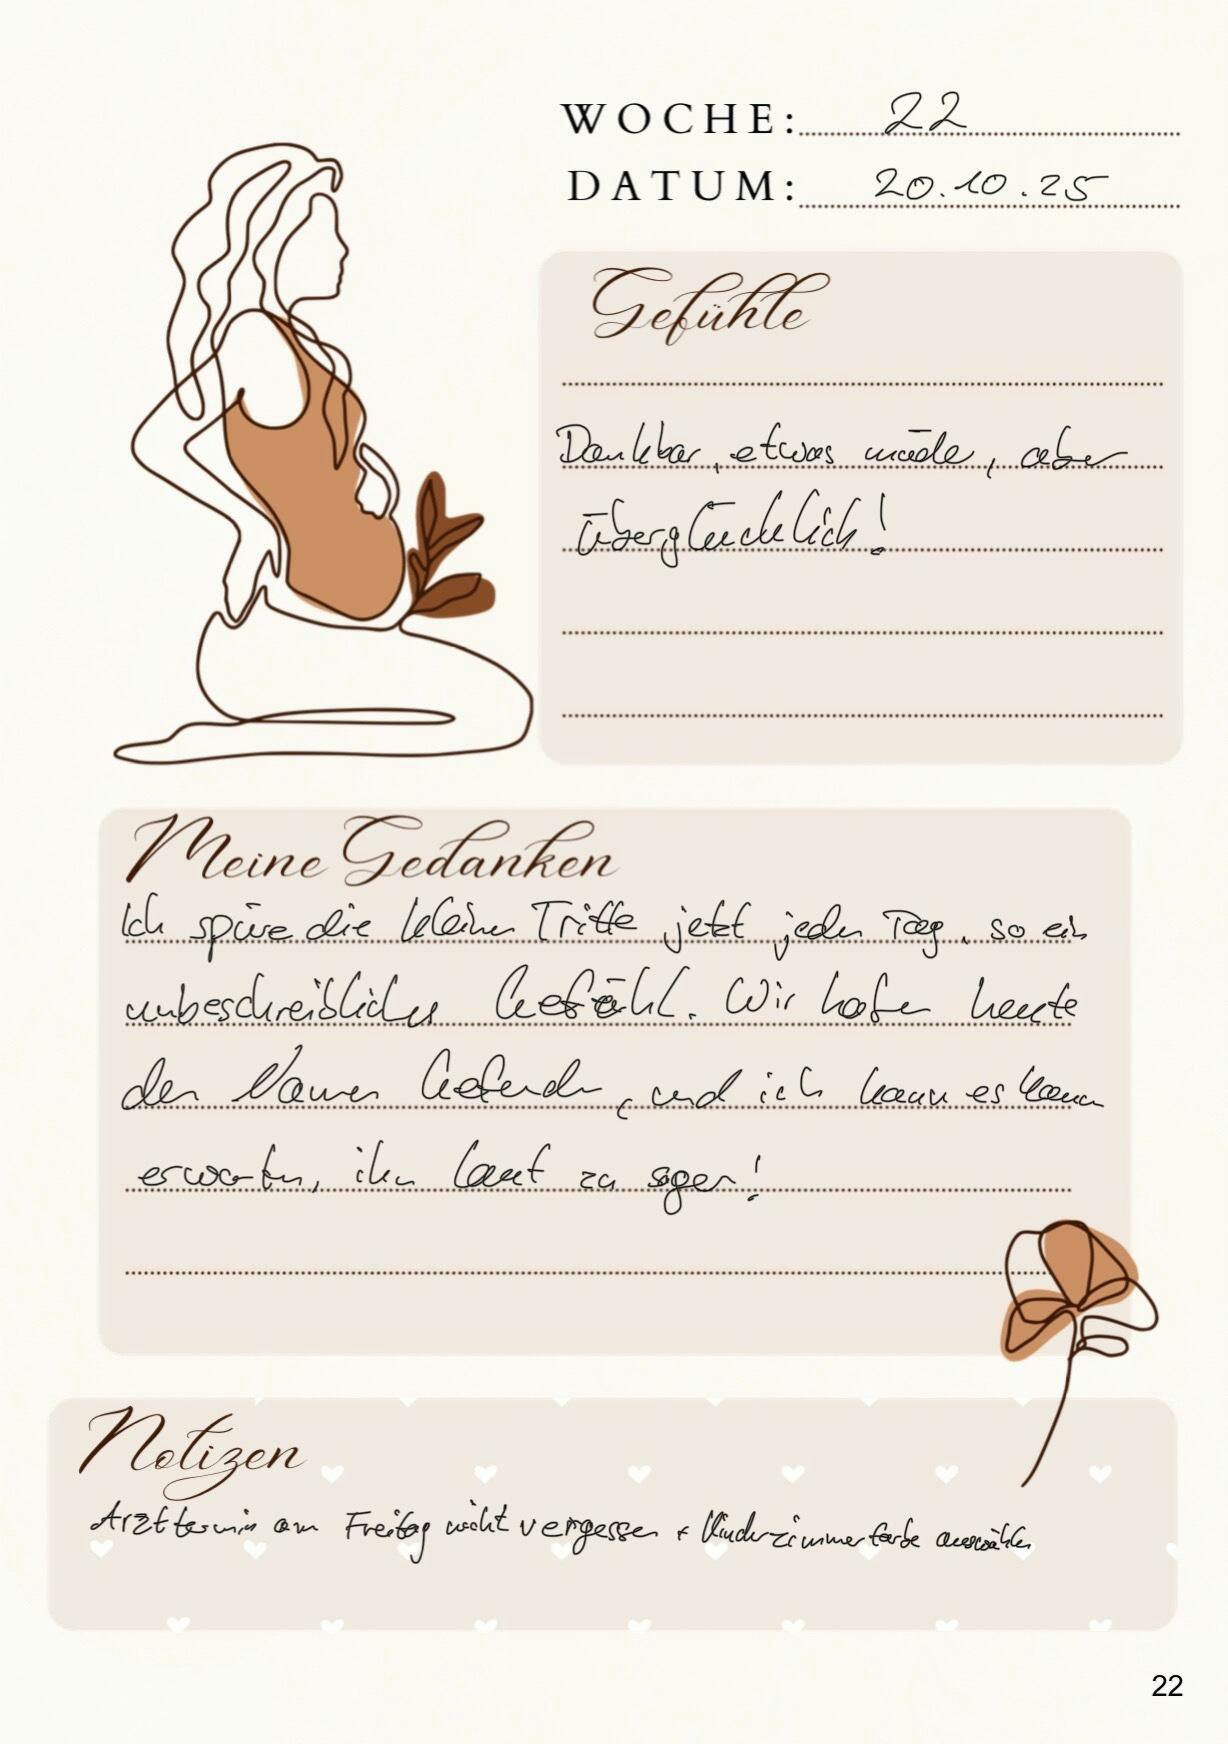 WOCHE: 22
DATUM: 20.10.25
Gefühle
Dankbar, etwas müde, aber
überglücklich!
Meine Gedanken
Ich spüre die kleinen Tritte jetzt jeden Tag, so ein
unbeschreibliches Gefühl. Wir haben heute
den Namen gefunden, und ich kann es kaum
erwarten, ihn laut zu sagen!
Notizen
Arzttermin am Freitag nicht vergessen + Kinderzimmerfarbe auswählen
22